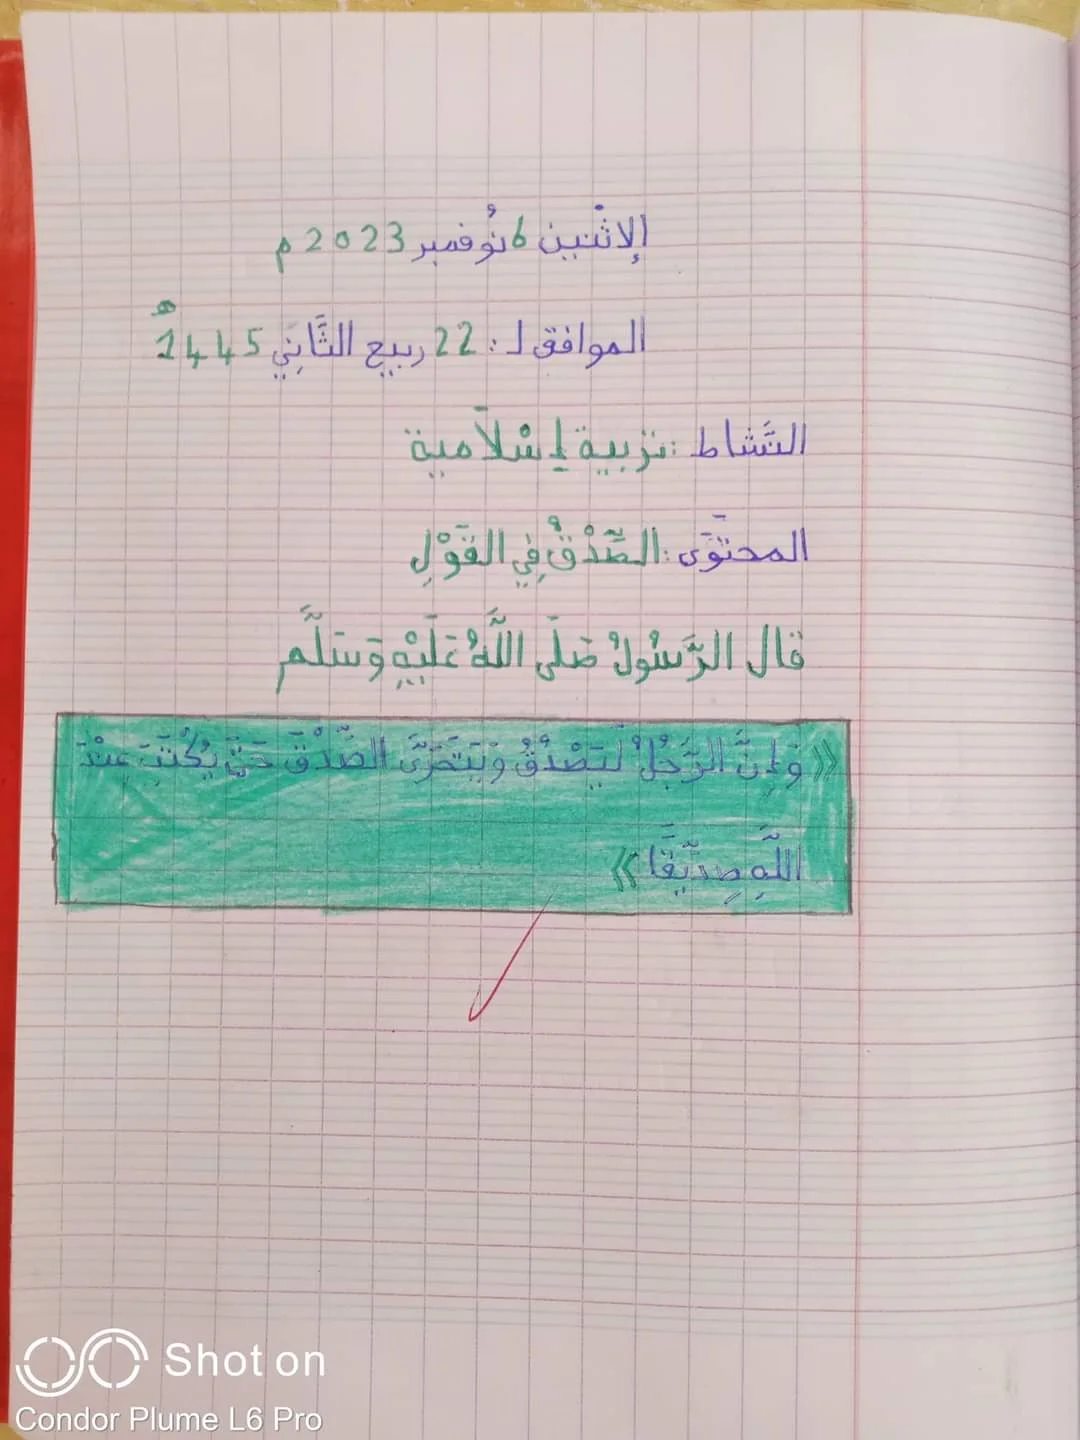 الإثْنين 6 نُوفمبر 2023 م
الموافق لـ: 22 ربيع الثَّانِي 1445 هـ
النَّشاط: تربية إسْلَامية
المحتوَى: الصِّدْقُ فِي القَوْلِ
قال الرَّسُولُ صَلَّى اللَّهُ عَلَيْهِ وَسَلَّم
«وَإِنَّ الرَّجُلَ لَيَصْدُقُ وَيَتَحَرَّى الصِّدْقَ حَتَّى يُكْتَبَ عِنْدَ
اللَّهِ صِدِّيقًا»
Shot on
Condor Plume L6 Pro